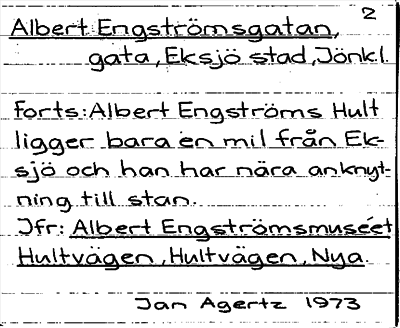 2
Albert Engströmsgatan,
gata, Eksjö stad, Jönk.l.
Forts: Albert Engströms Hult
ligger bara en mil från Ek-
sjö och han har nära anknyt-
ning till stan.
Jfr: Albert Engströmsmuséet
Hultvägen, Hultvägen, Nya.
Jan Agertz 1973